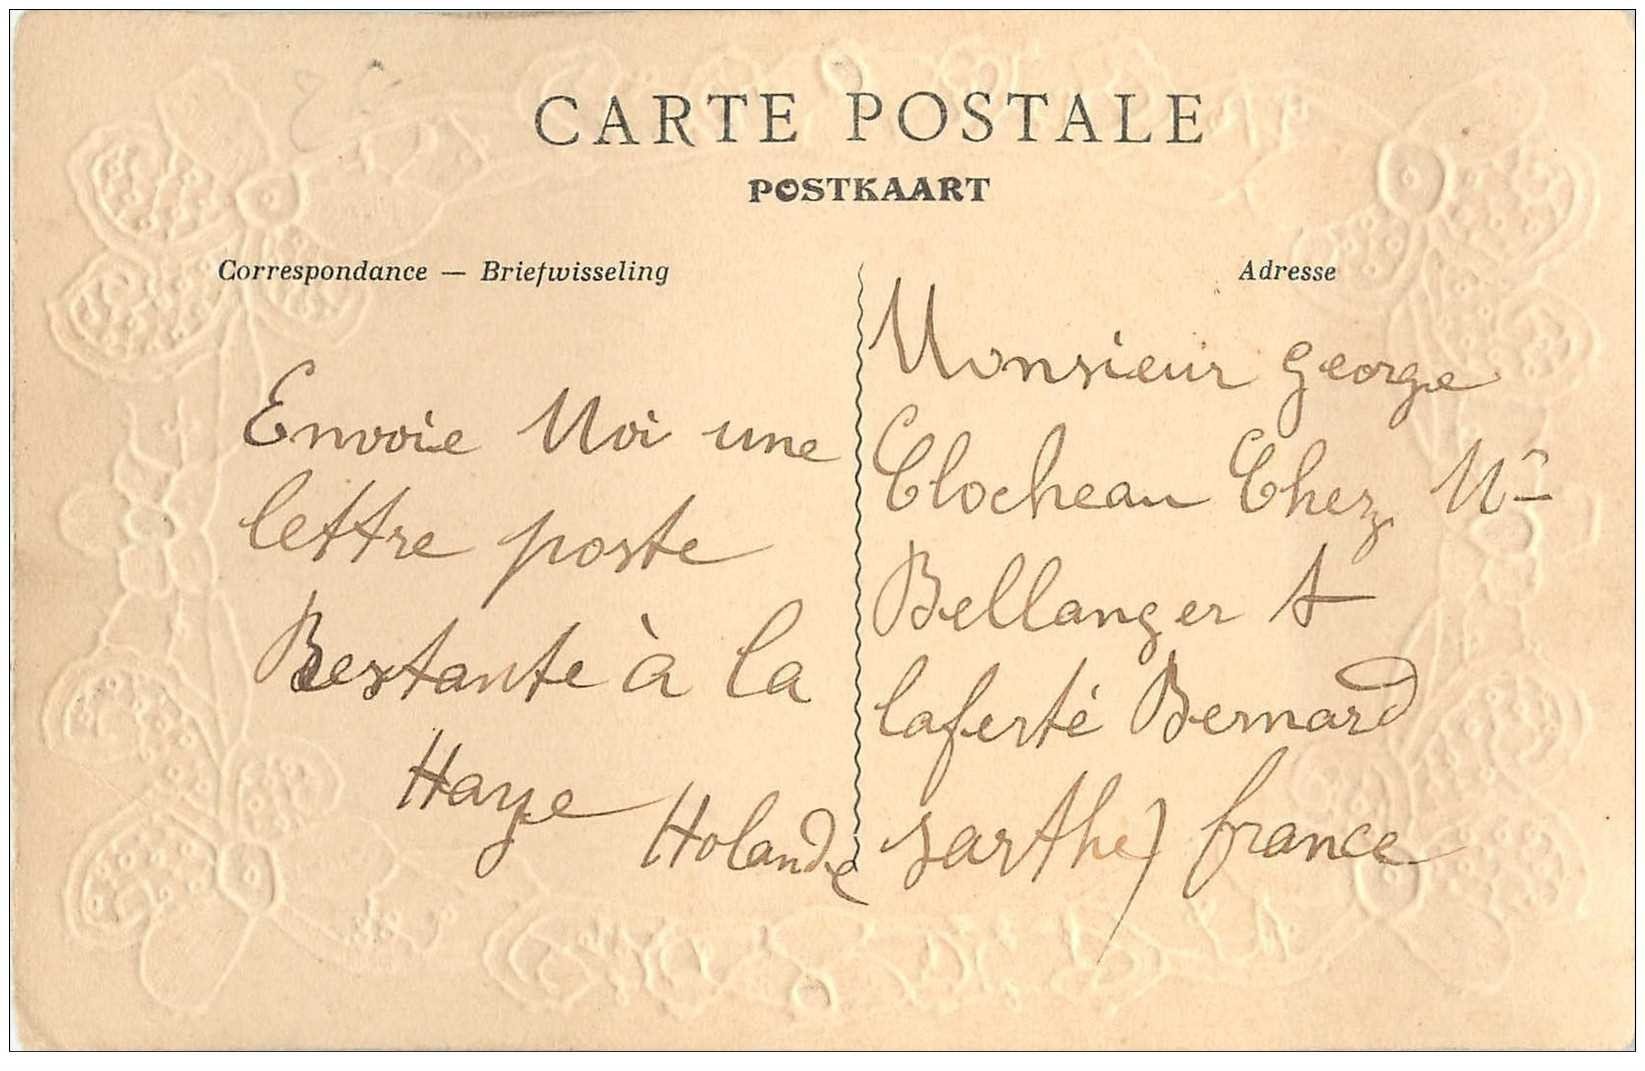 CARTE POSTALE
POSTKAART
Correspondance — Briefwisseling
Adresse
Envoie Moi une
lettre poste
Restante à la
Haye
Holande
Monsieur George
Clocheau Chez Mr
Bellanger A
laferté Bernard
sarthe) france